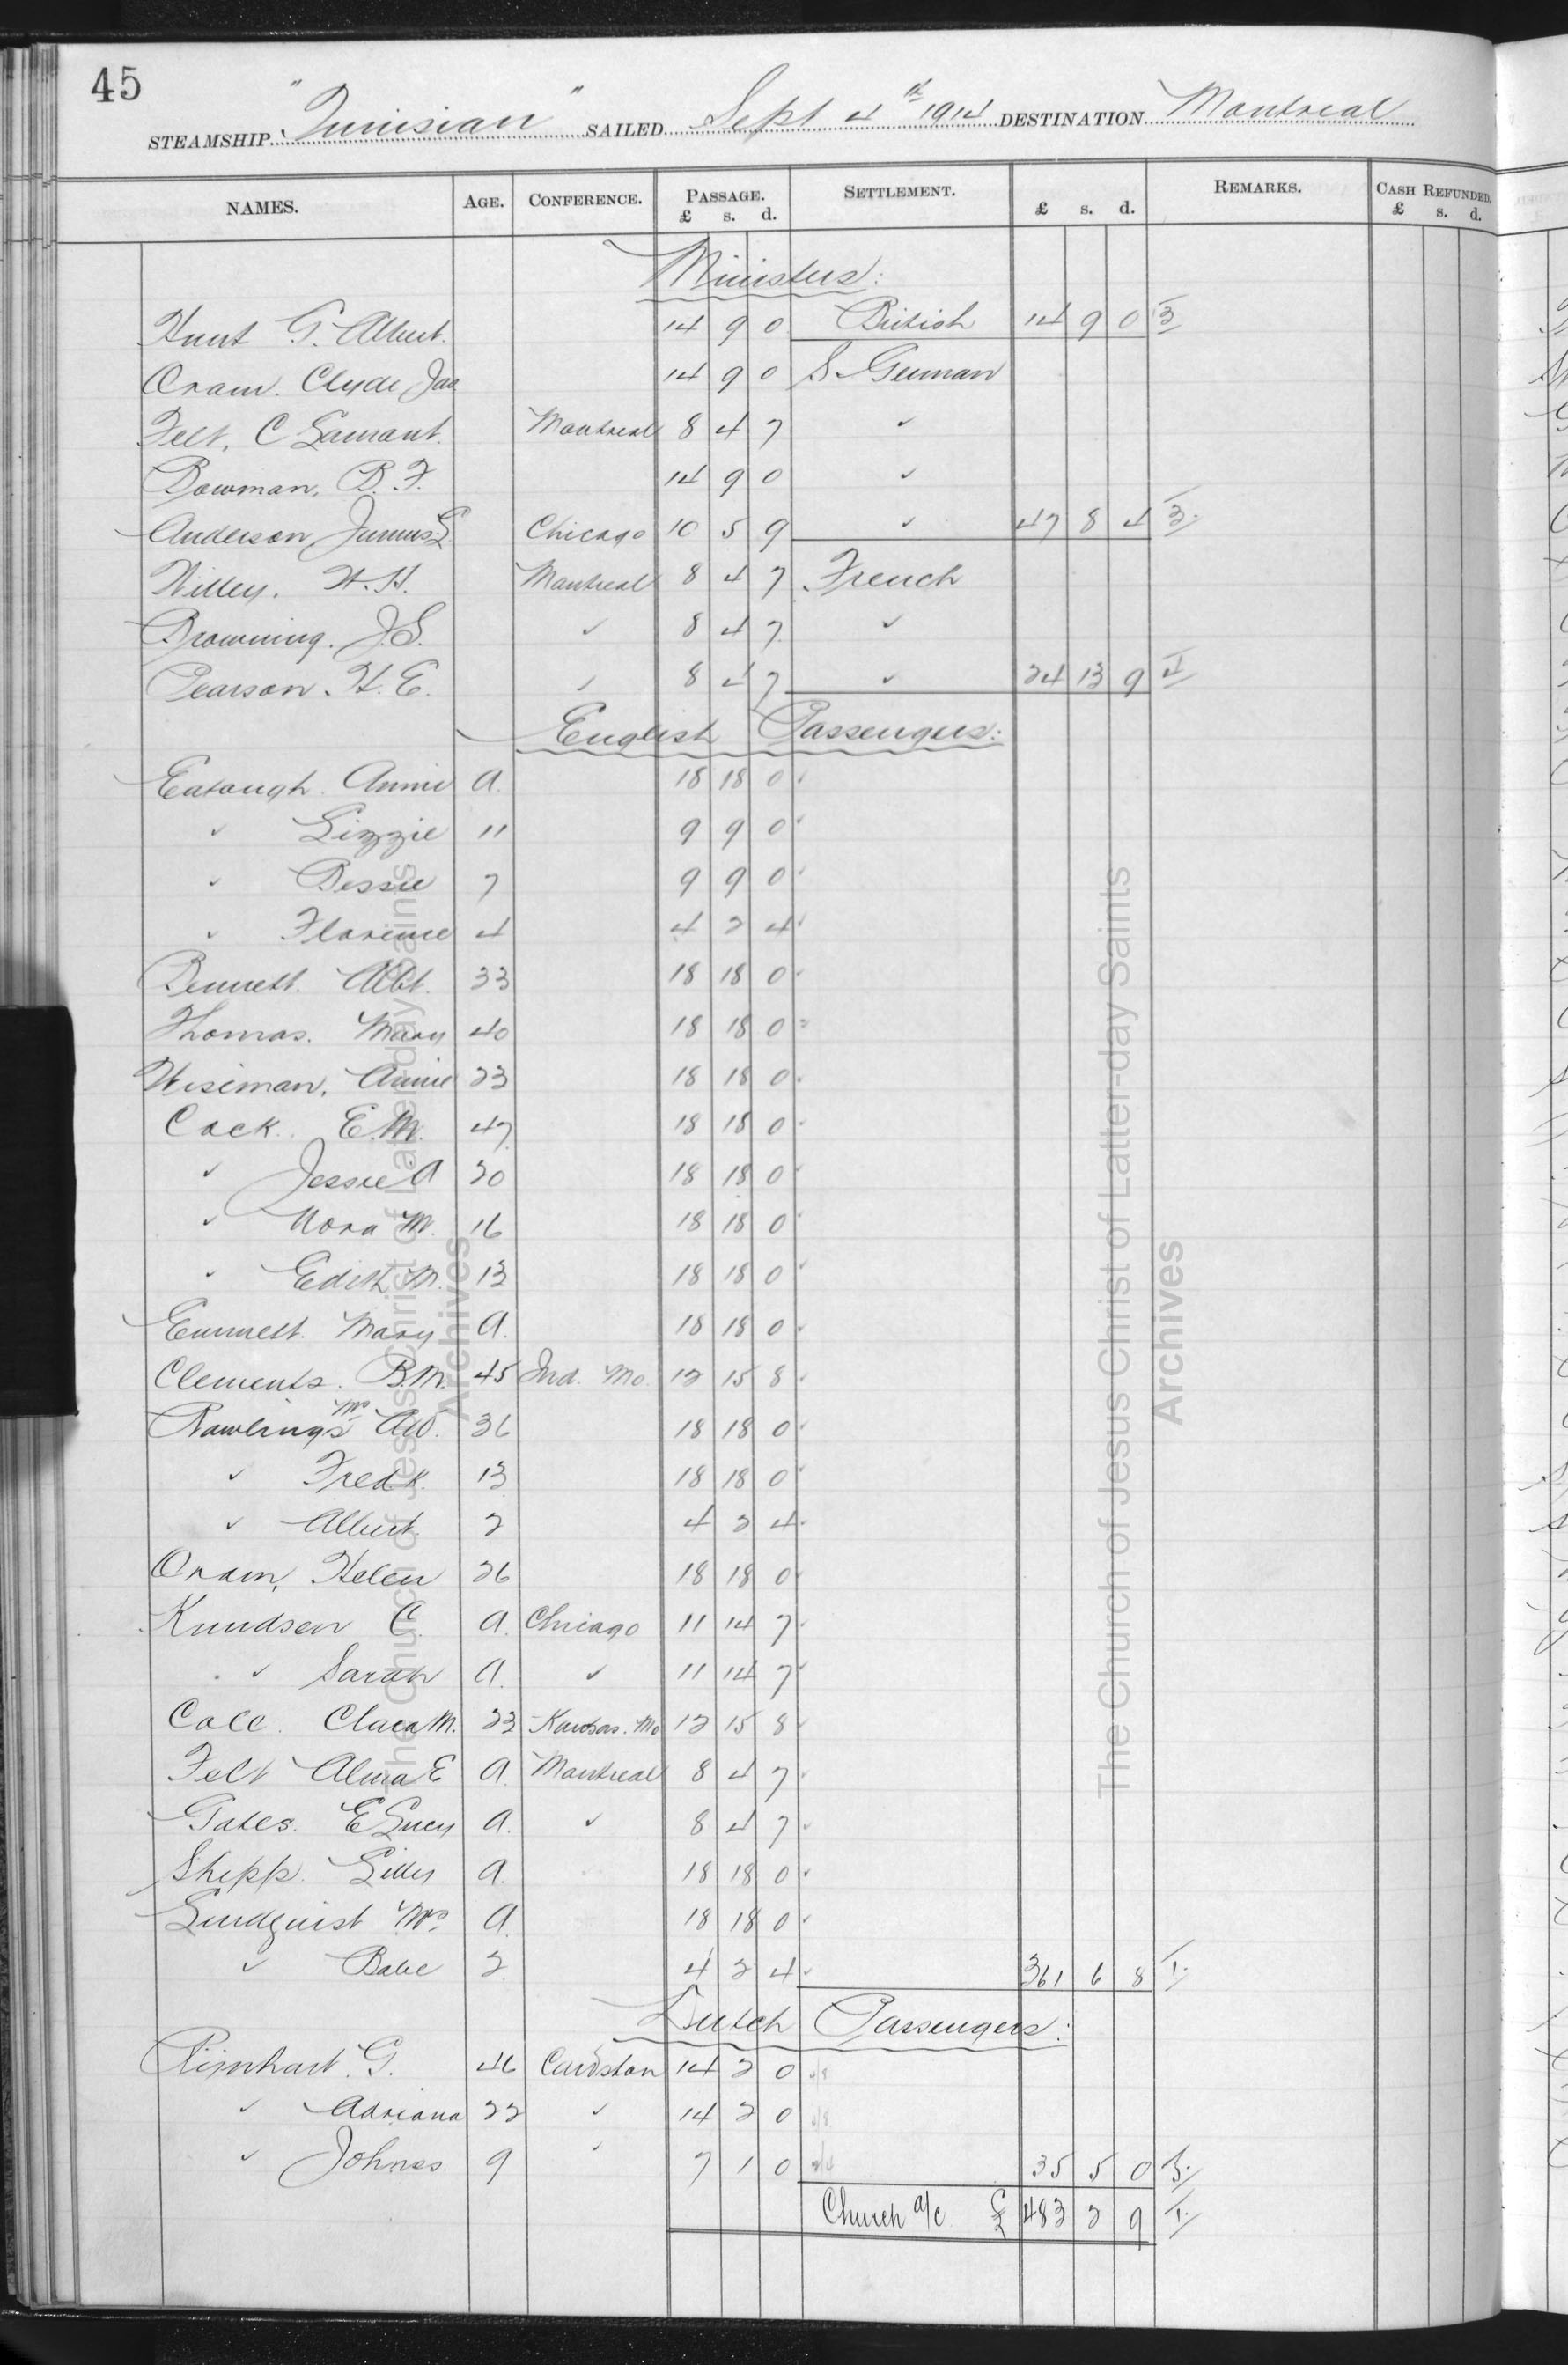 45
STEAMSHIP "Tunisian" SAILED Sept 4th 1914 DESTINATION Montreal
NAMES. AGE. CONFERENCE. PASSAGE. £ s. d. SETTLEMENT. £ s. d. REMARKS. CASH REFUNDED. £ s. d.
Ministers:
Hunt G. Albert. 14 9 0 British 14 9 0 3
Oram. Clyde Jas 14 9 0 S. German
Felt, C Lamont. Montreal 8 4 7 "
Bowman, B. F. 14 9 0 "
Anderson Junius L Chicago 10 5 9 " 47 8 4 3.
Willey. H. H. Montreal 8 4 7 French
Browning. J. S. " 8 4 7 "
Pearson. H. E. " 8 4 7 " 24 13 9
English Passengers:
Eatough. Annie A. 18 18 0
" Lizzie 11 9 9 0
" Bessie 7 9 9 0
" Florence 4 4 2 4
Bennett. Albt. 33 18 18 0
Thomas. Mary 40 18 18 0
Wiseman, Annie 23 18 18 0
Cock. E. M. 47 18 18 0
" Jessie A 20 18 18 0
" Nora M. 16 18 18 0
" Edith M. 13 18 18 0
Emmett. Mary A. 18 18 0
Clements. B. M. 45 Ind. Mo. 12 15 8
Rawlings Mrs AW. 36 18 18 0
" Fredk. 13 18 18 0
" Albert. 2 4 2 4
Oram, Helen 26 18 18 0
Knudsen C. A. Chicago 11 14 7
" Sarah A. " 11 14 7
Cole. Clara M. 23 Kansas. Mo 12 15 8
Felt Alma E A. Montreal 8 4 7
Gates. E Lucy A. " 8 4 7
Shepp. Lilly A. 18 18 0
Lindquist Mrs. A. 18 18 0
" Babe 2 4 2 4 361 6 8 I.
Dutch Passengers:
Rijnhart. G. 46 Cardston 14 2 0
" Adriana 22 " 14 2 0
" Johnes 9 " 7 1 0 35 5 0 3.
Church a/c £ 483 2 9 I.
The Church of Jesus Christ of Latter-day Saints
Archives
The Church of Jesus Christ of Latter-day Saints
Archives